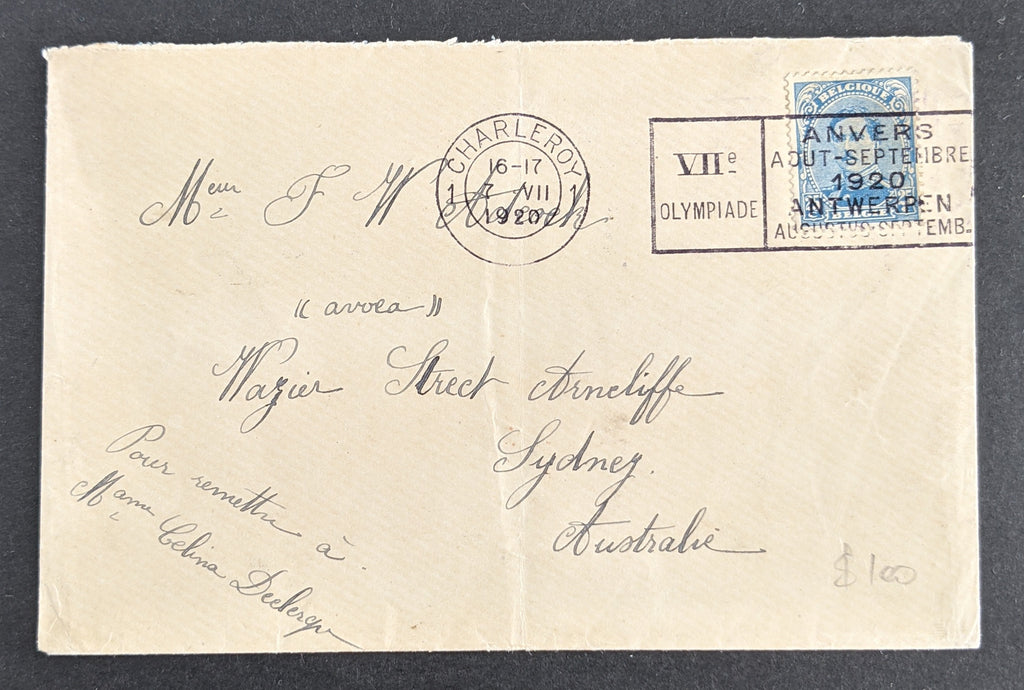 BELGIQUE
CHARLEROY
16-17
1 7 VII 1
1920
VIIe
OLYMPIADE
ANVERS
AOUT-SEPTEMBRE
1920
ANTWERPEN
AUGUSTUS-SEPTEMB-
Meur F W
« avoca »
Wazier Street Arncliffe
Sydney.
Australie
Pour remettre à
Mame Celina Declercq
$100